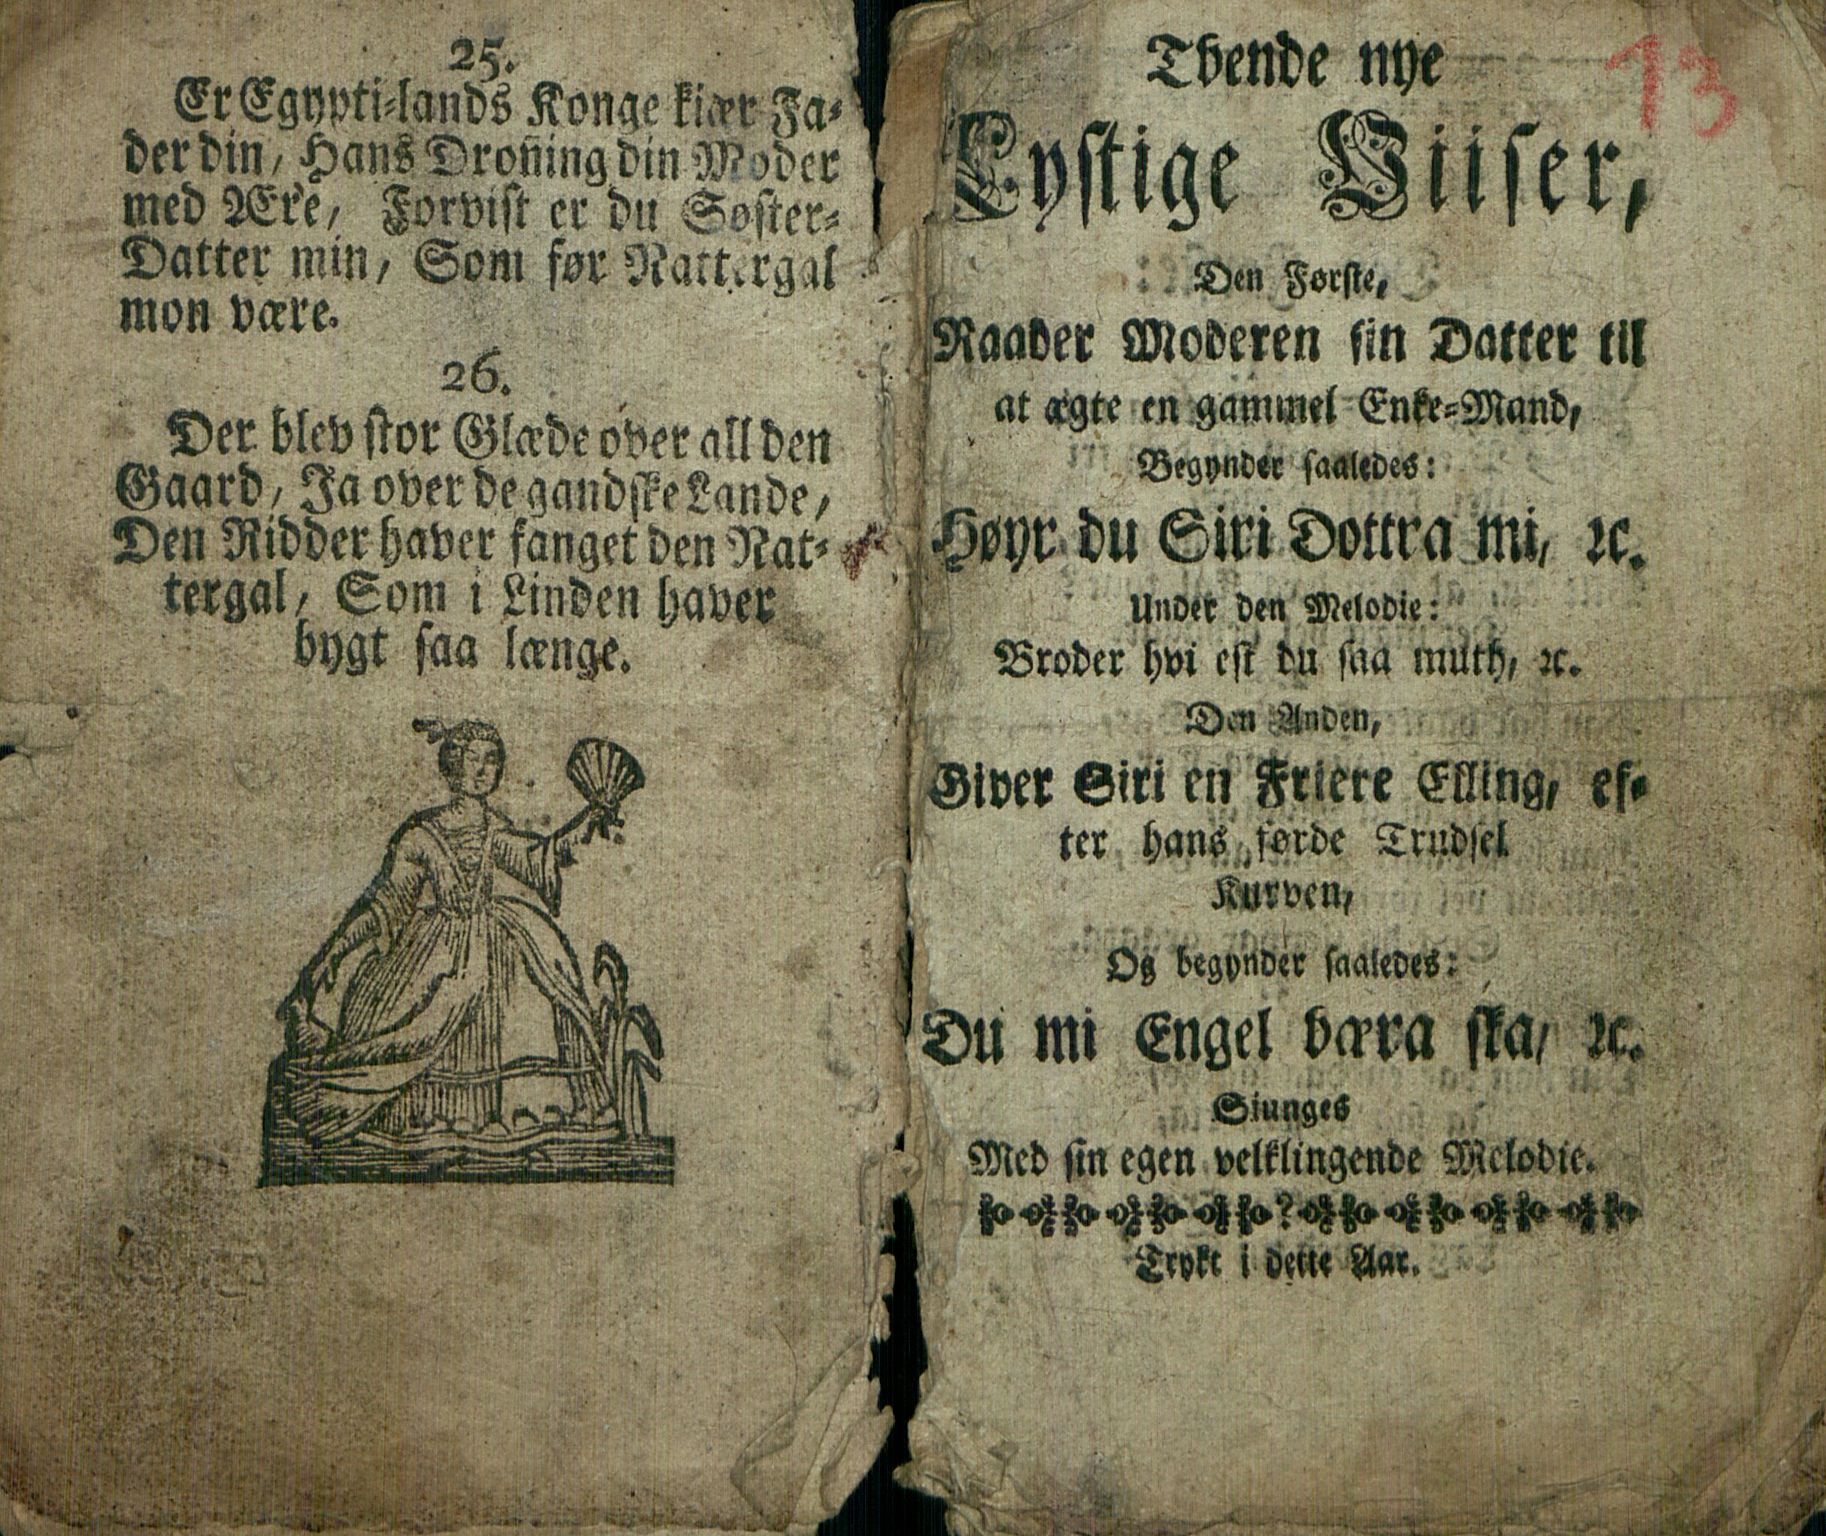 25.
Er Egypti-lands Konge kiær Fa-
der din, Hans Droñing din Moder
med Ære, Forvist er du Søster-
Datter min, Som før Nattergal
mon være.
26.
Der blev stor Glæde over all den
Gaard, Ja over de gandske Lande,
Den Ridder haver fanget den Nat-
tergal, Som i Linden haver
bygt saa længe.
13
Tvende nye
Lystige Viiser,
Den Første,
Raader Moderen sin Datter til
at ægte en gammel Enke-Mand,
Begynder saaledes:
Høyr du Siri Dottra mi, ꝛc.
Under den Melodie:
Broder hvi est du saa muth, ꝛc.
Den Anden,
Giver Siri en Friere Elling, ef-
ter hans førde Trudsel
Kurven,
Og begynder saaledes:
Du mi Engel væra ska, ꝛc.
Siunges
Med sin egen velklingende Melodie.
Trykt i dette Aar.